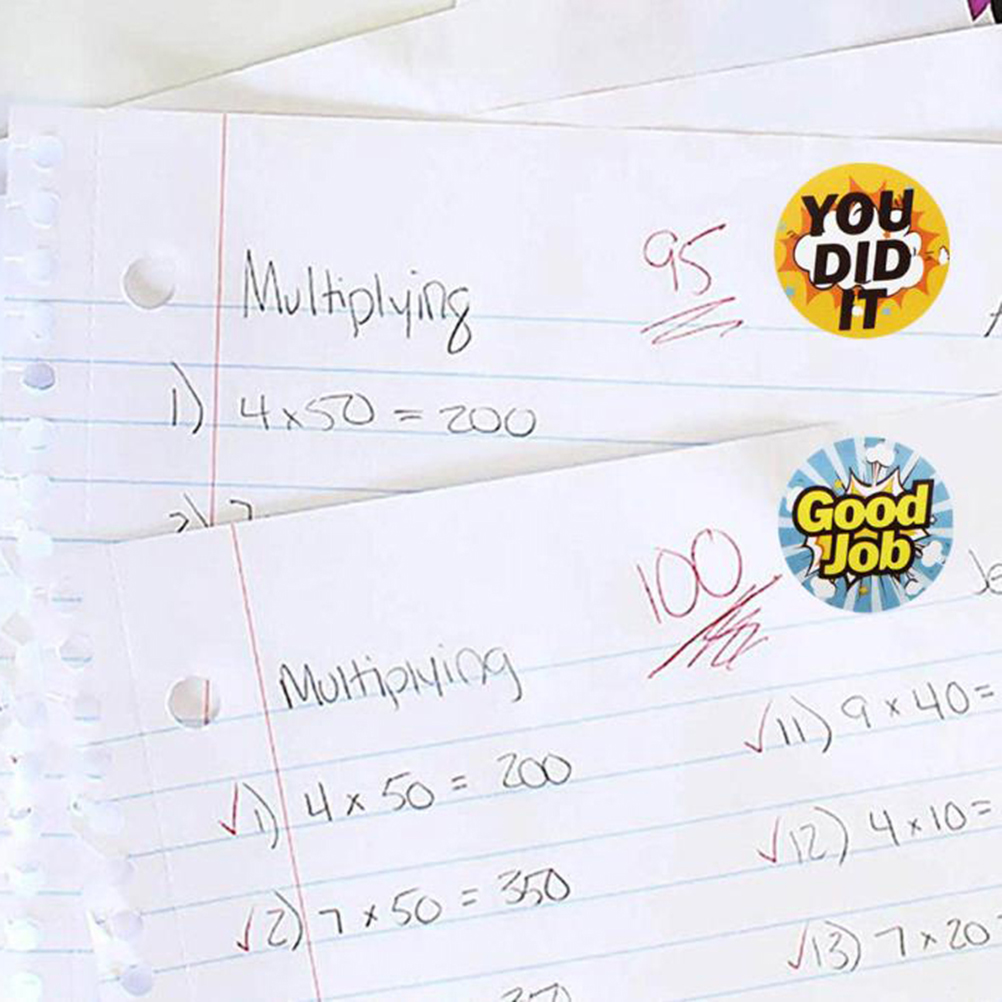 Multiplying
95
YOU
DID
IT
1) 4 x 50 = 200
2) 7
100
Good
Job
Multiplying
1) 4 x 50 = 200
2) 7 x 50 = 350
11) 9 x 40 =
12) 4 x 10 =
13) 7 x 20